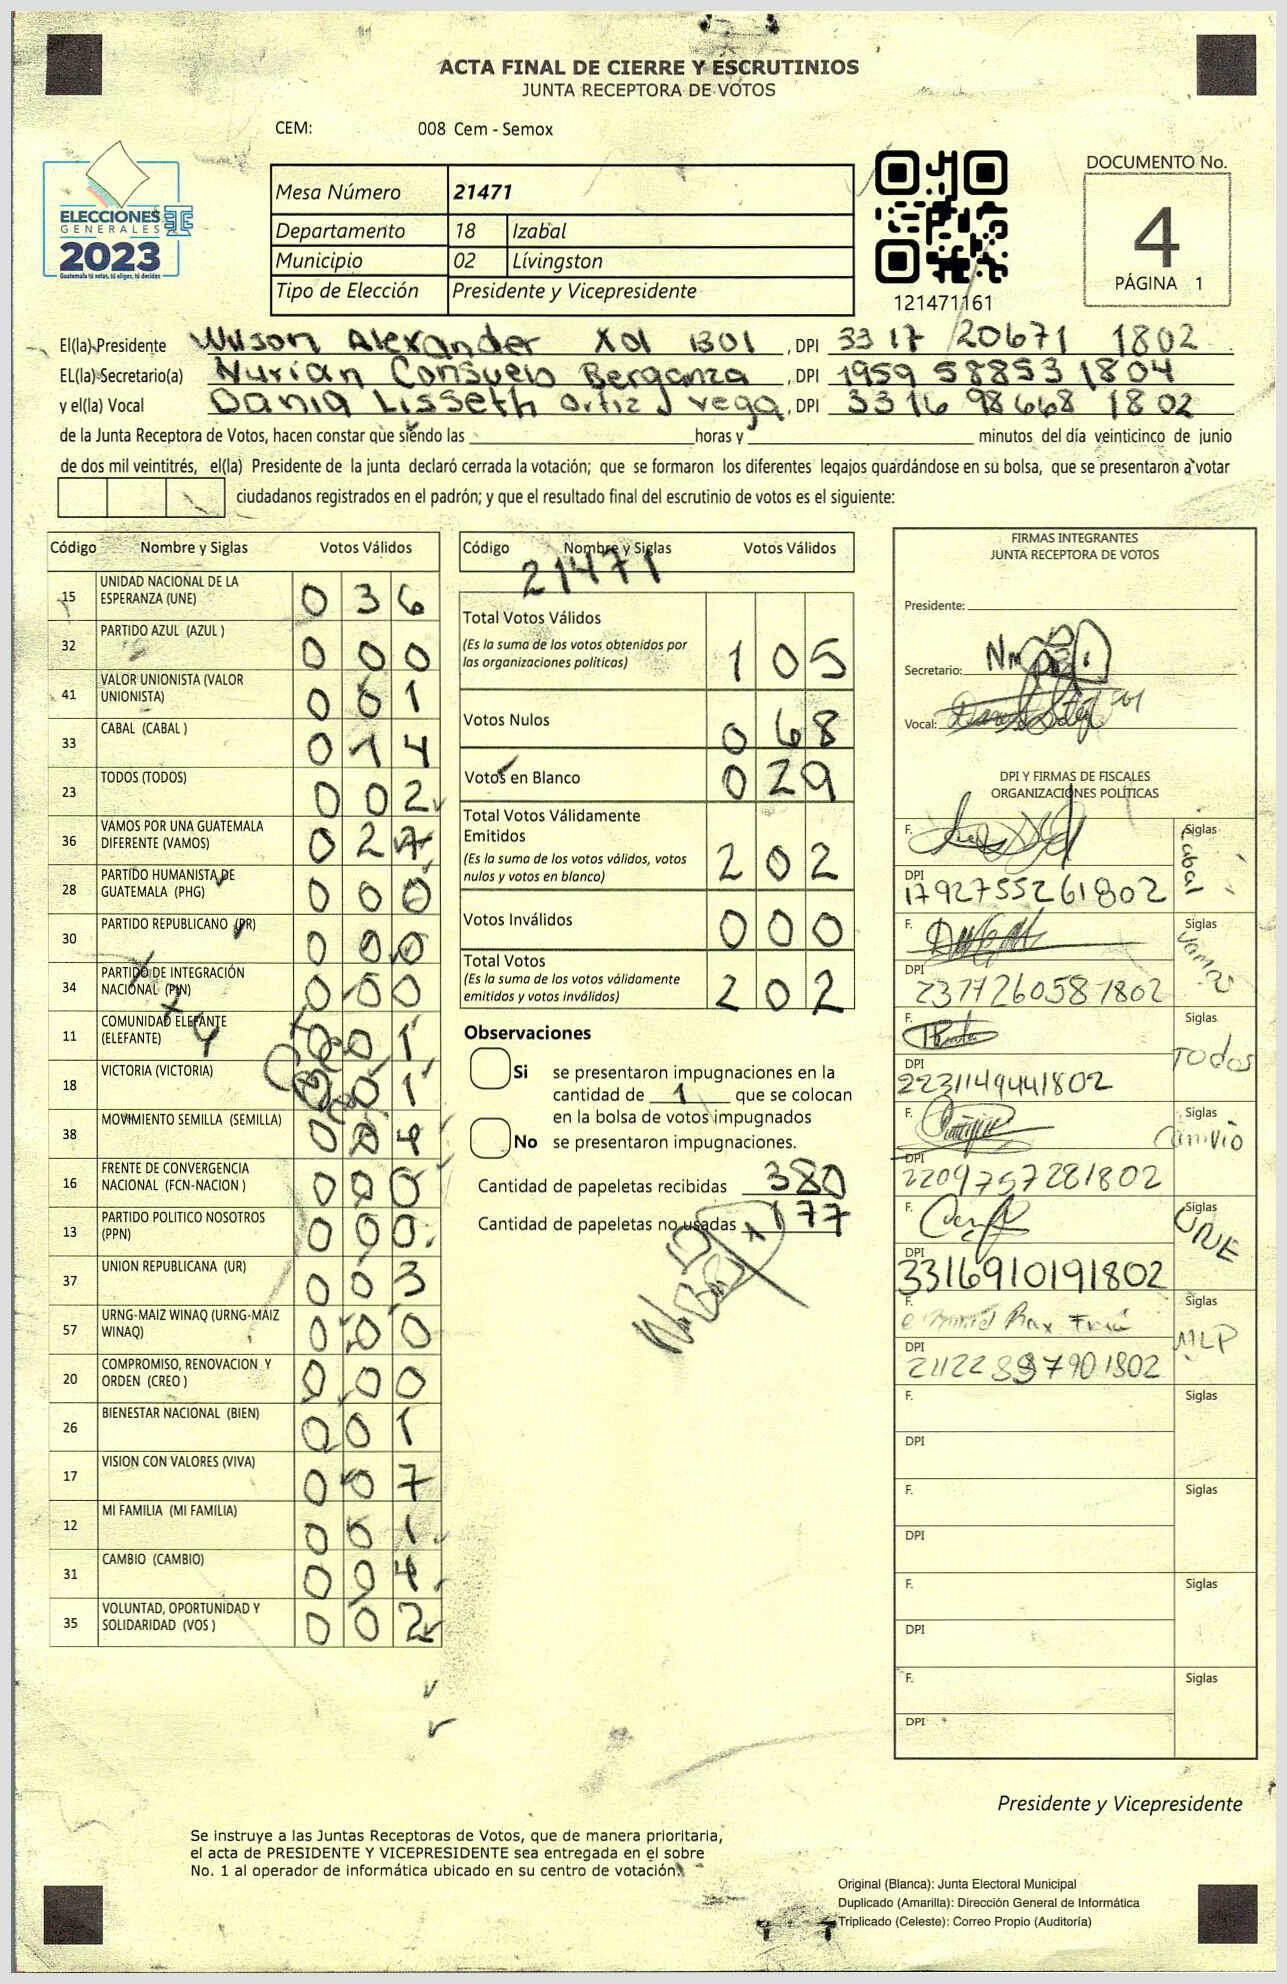 ACTA FINAL DE CIERRE Y ESCRUTINIOS
JUNTA RECEPTORA DE VOTOS
CEM: 008 Cem - Semox
ELECCIONES
GENERALES
2023
Guatemala tú votas, tú eliges, tú decides
Mesa Número 21471
Departamento 18 Izabal
Municipio 02 Lívingston
Tipo de Elección Presidente y Vicepresidente
121471161
DOCUMENTO No.
4
PÁGINA 1
El(la) Presidente Wilson Alexander Xol , DPI 3317 20671 1802
EL(la) Secretario(a) Nurian Consuelo Berganza , DPI 1959 58853 1804
y el(la) Vocal Dania Lisseth Ortiz Vega , DPI 3316 98668 1802
de la Junta Receptora de Votos, hacen constar que siendo las horas y minutos del día veinticinco de junio
de dos mil veintitrés, el(la) Presidente de la junta declaró cerrada la votación; que se formaron los diferentes legajos guardándose en su bolsa, que se presentaron a votar
ciudadanos registrados en el padrón; y que el resultado final del escrutinio de votos es el siguiente:
Código Nombre y Siglas Votos Válidos
15 UNIDAD NACIONAL DE LA ESPERANZA (UNE) 0 3 6
32 PARTIDO AZUL (AZUL ) 0 0 0
41 VALOR UNIONISTA (VALOR UNIONISTA) 0 0 1
33 CABAL (CABAL ) 0 1 4
23 TODOS (TODOS) 0 0 2
36 VAMOS POR UNA GUATEMALA DIFERENTE (VAMOS) 0 2 7
28 PARTIDO HUMANISTA DE GUATEMALA (PHG) 0 0 0
30 PARTIDO REPUBLICANO (PR) 0 0 0
34 PARTIDO DE INTEGRACIÓN NACIONAL (PIN) 0 0 0
11 COMUNIDAD ELEFANTE (ELEFANTE) 0 0 1
18 VICTORIA (VICTORIA) 0 0 1
38 MOVIMIENTO SEMILLA (SEMILLA) 0 0 4
16 FRENTE DE CONVERGENCIA NACIONAL (FCN-NACION ) 0 0 0
13 PARTIDO POLITICO NOSOTROS (PPN) 0 0 0
37 UNION REPUBLICANA (UR) 0 0 3
57 URNG-MAIZ WINAQ (URNG-MAIZ WINAQ) 0 0 0
20 COMPROMISO, RENOVACION Y ORDEN (CREO ) 0 0 0
26 BIENESTAR NACIONAL (BIEN) 0 0 1
17 VISION CON VALORES (VIVA) 0 0 7
12 MI FAMILIA (MI FAMILIA) 0 0 1
31 CAMBIO (CAMBIO) 0 0 4
35 VOLUNTAD, OPORTUNIDAD Y SOLIDARIDAD (VOS ) 0 0 2
Código Nombre y Siglas Votos Válidos
21471
Total Votos Válidos 1 0 5
(Es la suma de los votos obtenidos por
las organizaciones politicas)
Votos Nulos 0 6 8
Votos en Blanco 0 2 9
Total Votos Válidamente
Emitidos 2 0 2
(Es la suma de los votos válidos, votos
nulos y votos en blanco)
Votos Inválidos 0 0 0
Total Votos 2 0 2
(Es la suma de los votos válidamente
emitidos y votos inválidos)
Observaciones
Si se presentaron impugnaciones en la
cantidad de 1 que se colocan
en la bolsa de votos impugnados
No se presentaron impugnaciones.
Cantidad de papeletas recibidas 380
Cantidad de papeletas no usadas 177
FIRMAS INTEGRANTES
JUNTA RECEPTORA DE VOTOS
Presidente:
Secretario:
Vocal:
DPI Y FIRMAS DE FISCALES
ORGANIZACIONES POLÍTICAS
F. Siglas Cabal
DPI 1792755261802
F. Siglas Vamos
DPI 2371260581802
F. Siglas TODOS
DPI 2231149441802
F. Siglas Camvio
DPI 2209757281802
F. Siglas UNE
DPI 3316910191802
F. Siglas MLP
DPI
F. Siglas
DPI
F. Siglas
DPI
F. Siglas
DPI
F. Siglas
DPI
Presidente y Vicepresidente
Se instruye a las Juntas Receptoras de Votos, que de manera prioritaria,
el acta de PRESIDENTE Y VICEPRESIDENTE sea entregada en el sobre
No. 1 al operador de informática ubicado en su centro de votación.
Original (Blanca): Junta Electoral Municipal
Duplicado (Amarilla): Dirección General de Informática
Triplicado (Celeste): Correo Propio (Auditoría)